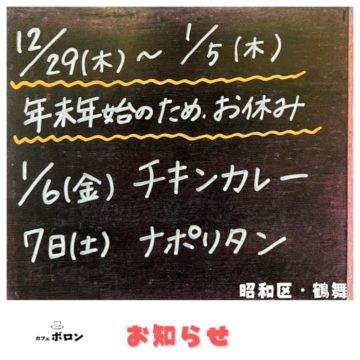 12/29(木)～1/5(木)
年末年始のため.お休み
1/6(金) チキンカレー
7日(土) ナポリタン
昭和区・鶴舞
カフェ ポロン
お知らせ